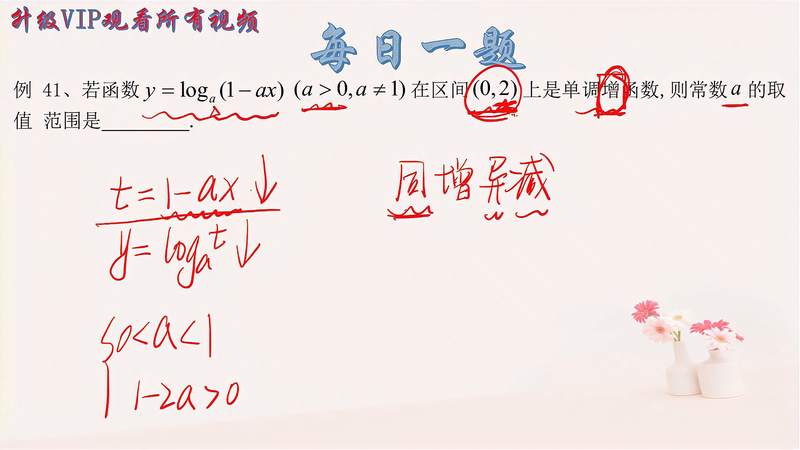 升级VIP观看所有视频
每日一题
例 41、若函数 y = logₐ(1−ax) (a > 0, a ≠ 1) 在区间 (0, 2) 上是单调增函数,则常数 a 的取
值 范围是________.
t = 1−ax ↓
同增异减
y = logₐt ↓
0<a<1
1−2a>0